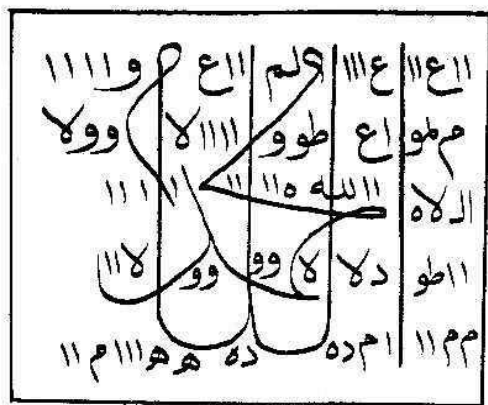 ااا ع اا اااا ع لم اا ع و اااا
م لمو اع طوو لا اااا وولا
الـلاه اا لله ه اا اا ا ا ا ا
ااطو دلا لا وو وو لا ااا
م م اا ا م ده ده ه ه ااا م اا